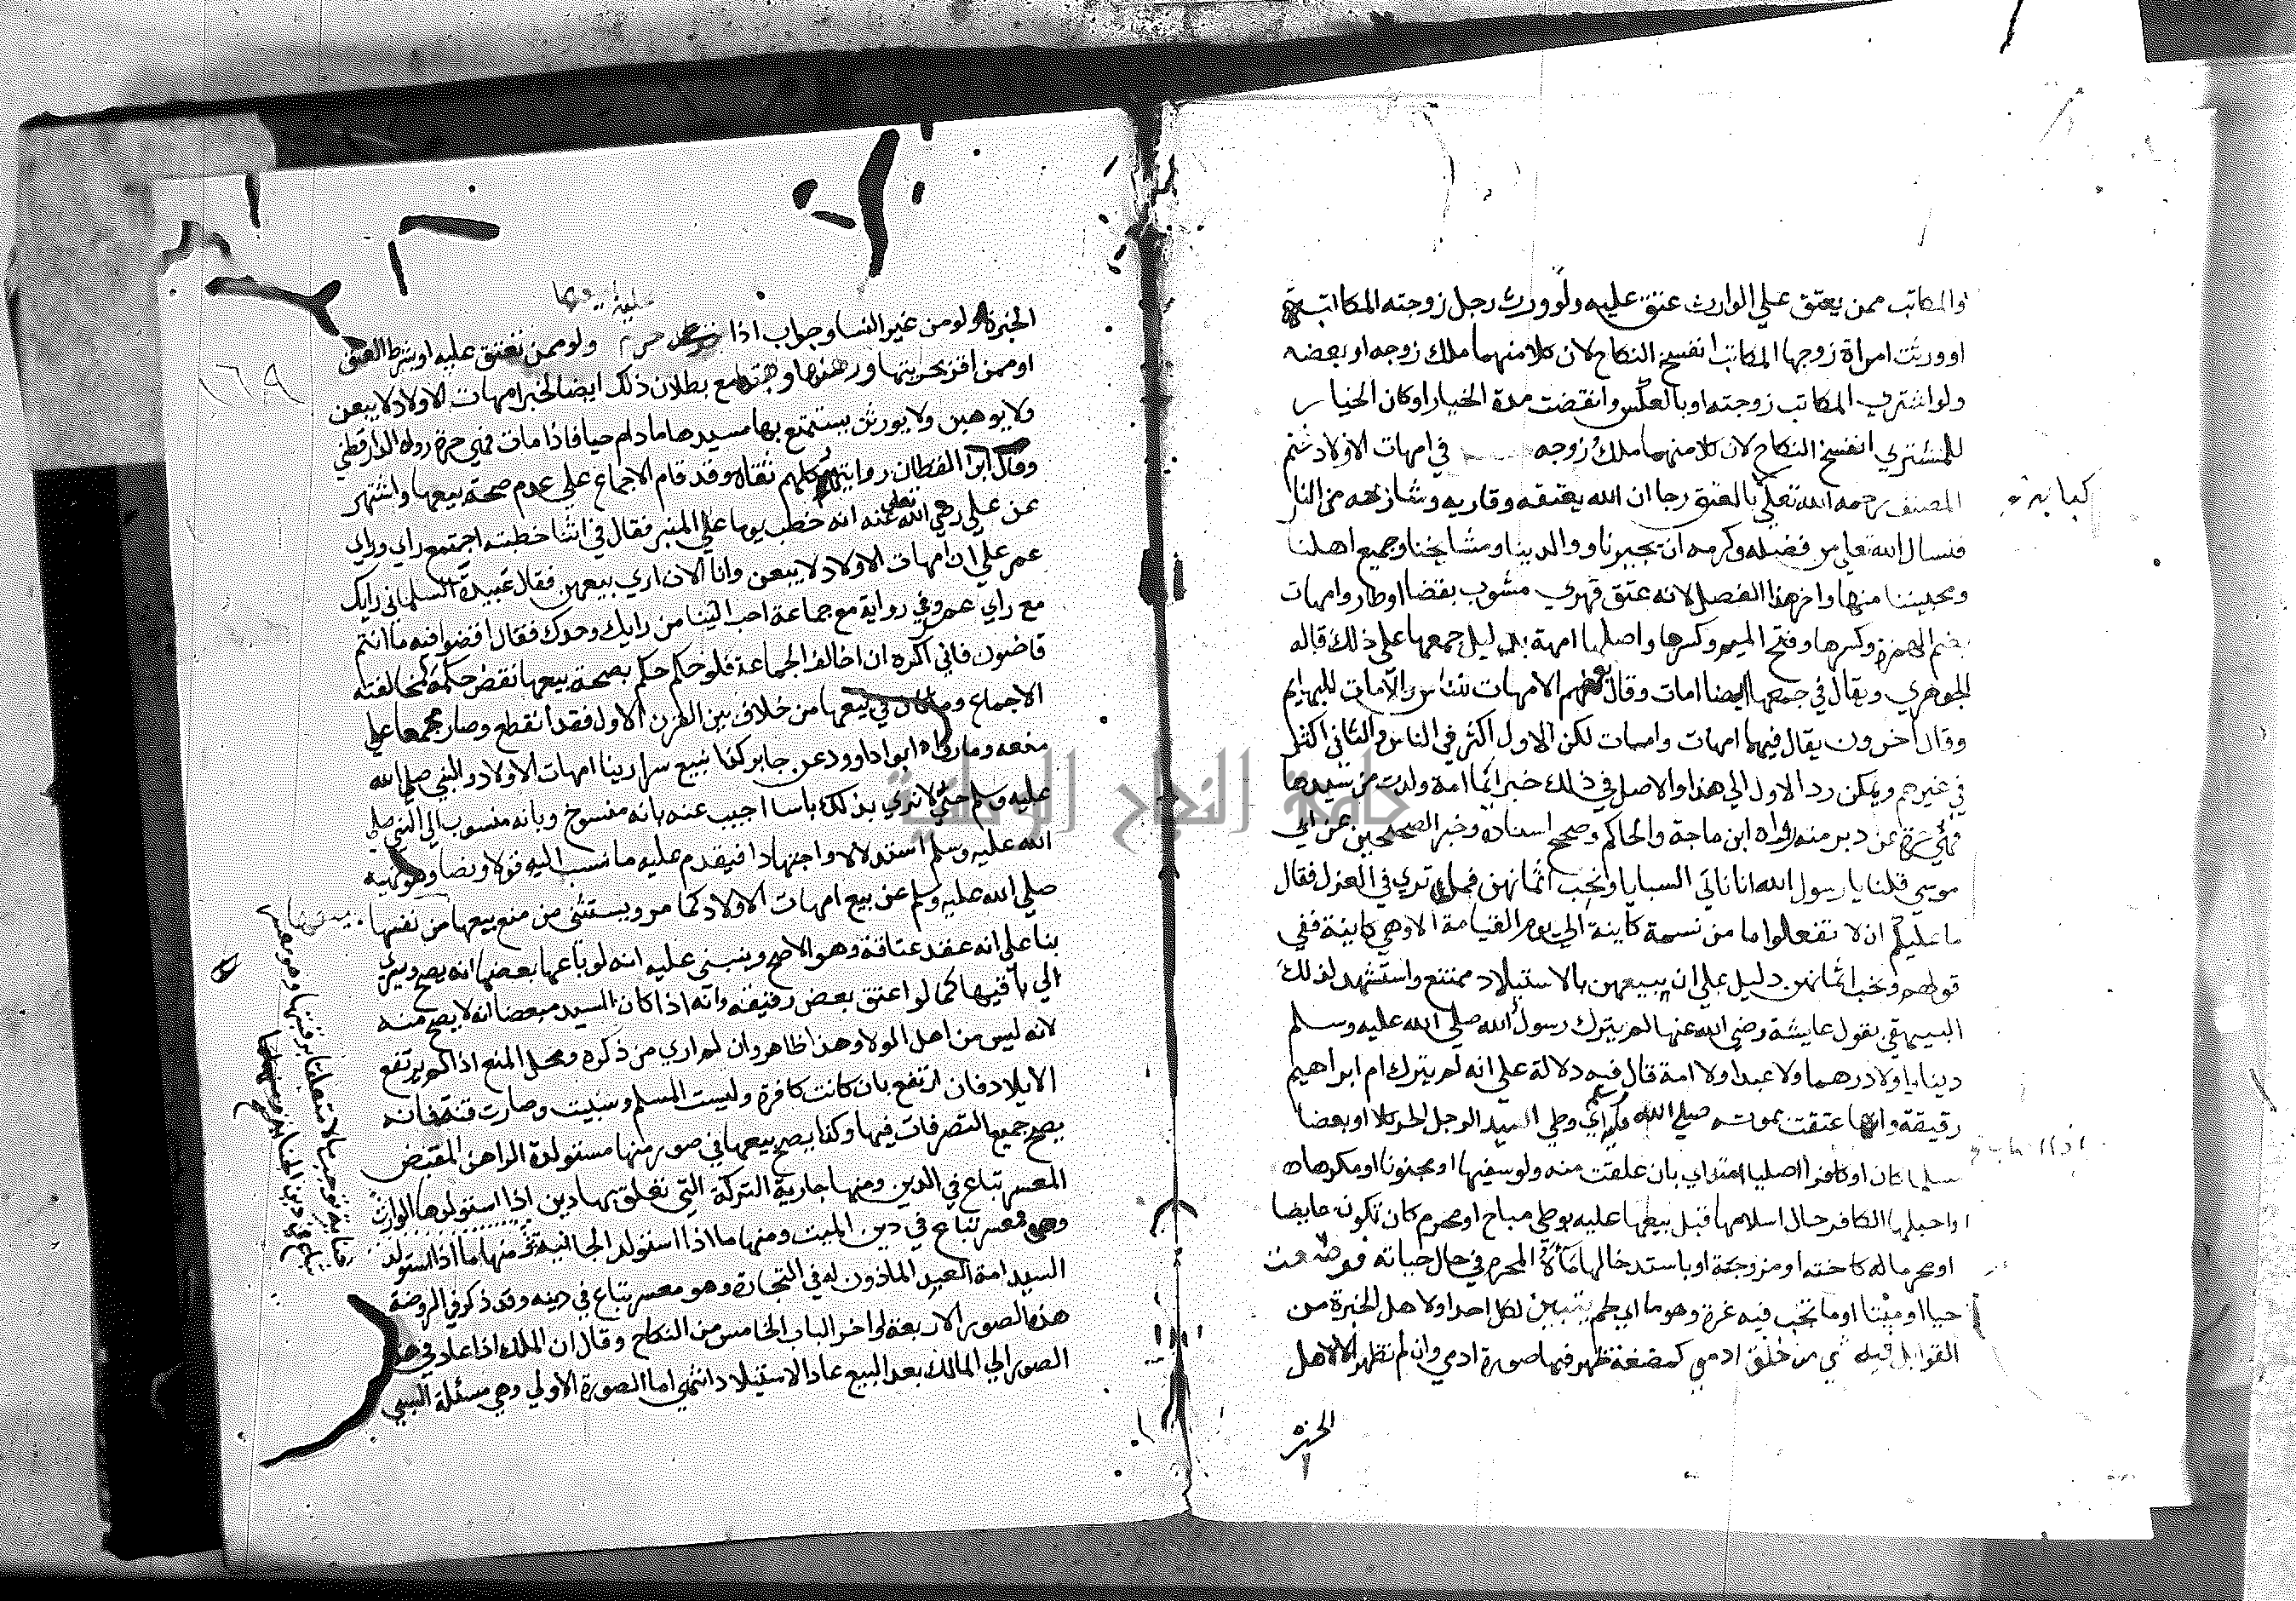 والمكاتب ممن يعتق علي الوارث عتق عليه ولو ورث رجل زوجته المكاتبة
او ورثت امراة زوجها المكاتب انفسخ النكاح لان كلا منهما ملك زوجه او بعضه
ولو اشتري المكاتب زوجته او بالعكس وانقضت مدة الخيار او كان الخيار
للمشتري انفسخ النكاح لان كلا منهما ملك زوجه في امهات الاولاد ختم
المصنف رحمه الله تعلي بالعتق رجا ان الله يعتقه وقاريه وشارحه من النار
فنسال الله تعلي من فضله وكرمه ان يجيرنا ووالدينا ومشايخنا وجميع اهلنا
ومحبيننا منها واخر هذا الفصل لانه عتق قهري مشوب بقضا اوطار وامهات
بضم الهمزة وكسرها وفتح الميم وكسرها واصلها امهة بدليل جمعها علي ذلك قاله
الجوهري ويقال في جمعها ايضا امات وقال بعضهم الامهات للناس والامات للبهايم
وقال اخرون يقال فيهما امهات وامات لكن الاول اكثر في الناس والثاني اكثر
في غيرهم ويمكن رد الاول الي هذا والاصل في ذلك خبر ايما امة ولدت من سيدها
فهي حرة عن دبر منه رواه ابن ماجة والحاكم وصحح اسناده وخبر الصحيحين عن ابي
موسي قلنا يا رسول الله انا ناتي السبايا ونحب اثمانهن فما تري في العزل فقال
ما عليكم ان لا تفعلوا ما من نسمة كاينة الي يوم القيامة الا وهي كاينة ففي
قولهم ونحب اثمانهن دليل علي ان بيعهن بالاستيلاد ممتنع واستشهد لذلك
البيهقي بقول عايشة رضي الله عنها لم يترك رسول الله صلي الله عليه وسلم
دينارا ولا درهما ولا عبدا ولا امة قال فيه دلالة علي انه لم يترك ام ابراهيم
رقيقة وانها عتقت بموته صلي الله وطي السيد الرجل الحر كلا او بعضا
مسلما كان او كافرا اصليا امته اي بان علقت منه ولو سفيها او مجنونا او مكرها
او احبلها الكافر حال اسلامها قبل بيعها عليه بوطي مباح او محرم كان تكون حايضا
او محرما له كاخته او مزوجة او باستدخالها ماءه المحرم في حال حياته فوضعت
حيا او ميتا او ما تجب فيه غرة وهو ما اي لحم يتبين لكل احد او لاهل الخبرة من
القوابل فيه شي من خلق ادمي كمضغة ظهر فيها صورة ادمي وان لم تظهر الا لاهل
الخبرة
الخبرة ولو من غير النسا وجواب اذا حرم ولو ممن تعتق عليه او بشرط العتق
او ممن اقر بحريتها ورهنها وهبتها مع بطلان ذلك ايضا لخبر امهات الاولاد لا يبعن
ولا يوهبن ولا يورثن يستمتع بها سيدها ما دام حيا فاذا مات فهي حرة رواه الدارقطني
وقال ابن القطان رواته كلهم ثقات وقد قام الاجماع علي عدم صحة بيعها واشتهر
عن علي رضي الله تعلي عنه انه خطب يوما علي المنبر فقال في اثنا خطبته اجتمع راي وراي
عمر علي ان امهات الاولاد لا يبعن وانا الان اري بيعهن فقال عبيدة السلماني رايك
مع راي عمر وفي رواية مع جماعة احب الينا من رايك وحدك فقال اقضوا فيه ما انتم
قاضون فاني اكره ان اخالف الجماعة فلو حكم حاكم بصحة بيعها نقض حكمه لمخالفته
الاجماع وما كان في بيعها من خلاف بين القرن الاول فقد انقطع وصار مجمعا علي
منعه وما رواه ابوا داوود عن جابر كنا نبيع سرارينا امهات الاولاد والنبي صلي الله
عليه وسلم حي لا نري بذلك باسا اجيب عنه بانه منسوخ وبانه منسوب الي النبي صلي
الله عليه وسلم استدلالا واجتهادا فيقدم عليه ما نسب اليه قولا ونصا وهو نهيه
صلي الله عليه وسلم عن بيع امهات الاولاد كما مر ويستثني من منع بيعها من نفسها
بنا علي انه عقد عتاقة وهو الاصح وينبني عليه انه لو باعها بعضها انه يصح ويسري
الي باقيها كما لو اعتق بعض رقيقه وانه اذا كان السيد مبعضا انه لا يصح منه
لانه ليس من اهل الولا وهذا ظاهر وان لم اري من ذكره ومحل المنع اذا لم يرتفع
الايلاد فان ارتفع بان كانت كافرة وليست لمسلم وسبيت وصارت قنة فانه
يصح جميع التصرفات فيها وكذا يصح بيعها في صور منها مستولدة الراهن المقبض
المعسر تباع في الدين ومنها جارية التركة التي تعلق بها دين اذا استولدها الوارث
وهو معسر تباع في دين الميت ومنها ما اذا استولد الجانية ومنها ما اذا استولد
السيد امة العبد الماذون له في التجارة وهو معسر تباع في دينه وقد ذكر في الروضة
هذه الصور الاربعة اواخر الباب الخامس من النكاح وقال ان الملك اذا عاد في هذه
الصور الي المالك بعد البيع عاد الاستيلاد انتهي اما الصورة الاولي وهي مسئلة السبي
١٦٩
جامعة النجاح الوطنية